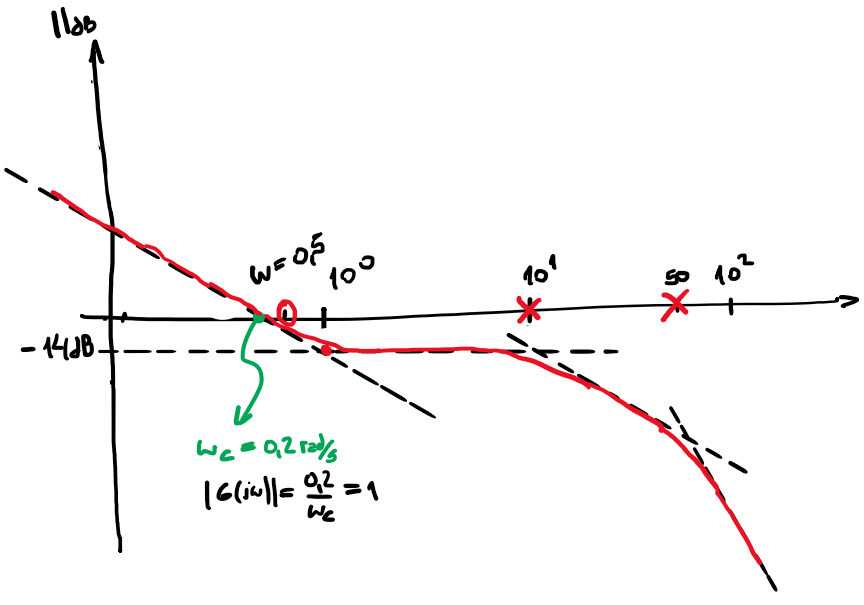 ||dB
ω=0,5
10⁰
10¹
50
10²
-14dB
ωc = 0,2 rad/s
|G(jω)|= 0,2/ωc = 1